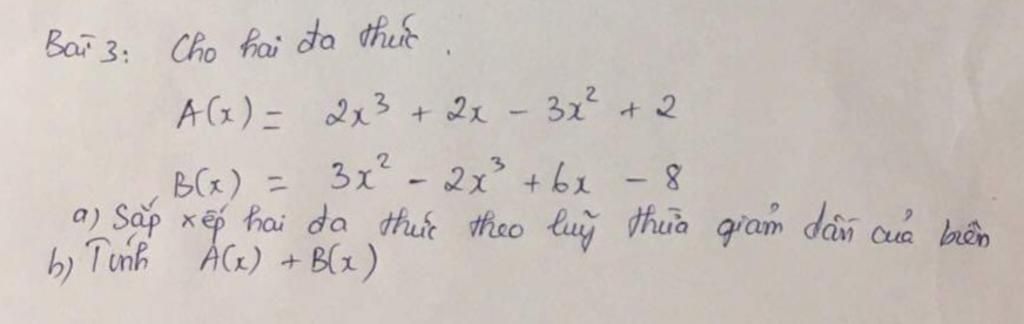 Bài 3: Cho hai đa thức.
A(x) = 2x³ + 2x - 3x² + 2
B(x) = 3x² - 2x³ + 6x - 8
a) Sắp xếp hai đa thức theo luỹ thừa giảm dần của biến
b) Tính A(x) + B(x)